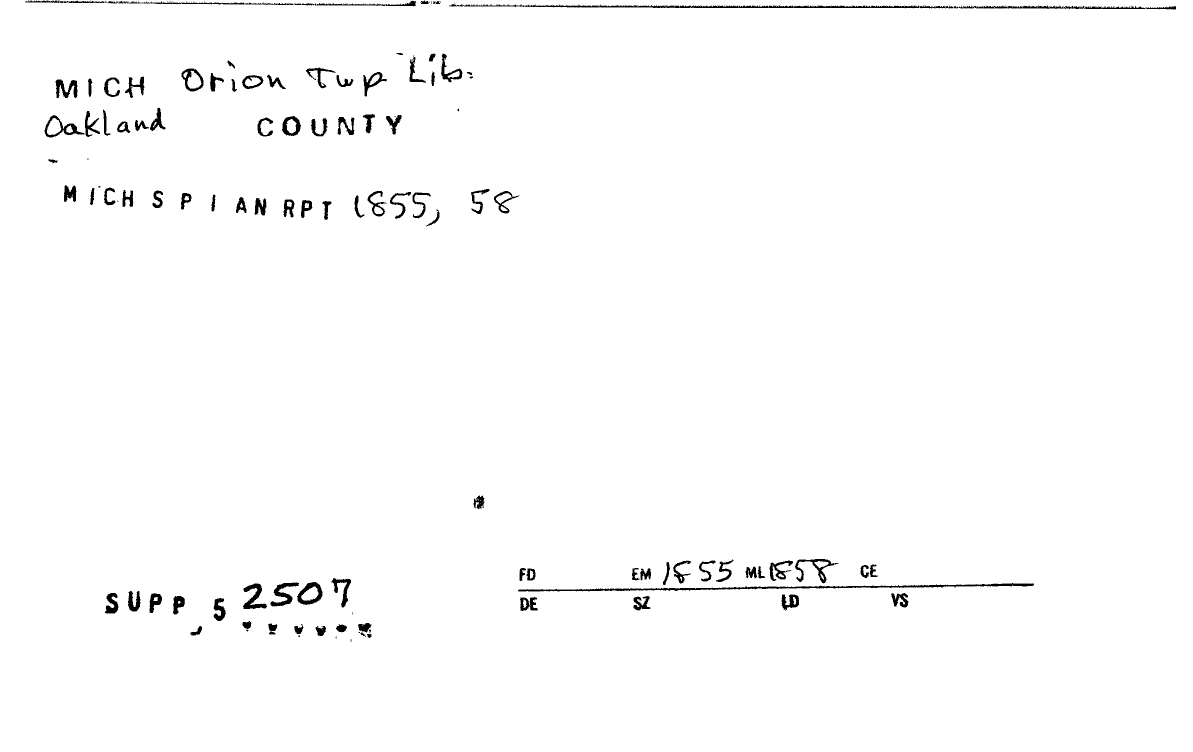 MICH Orion Twp Lib.
Oakland COUNTY
MICH S P I AN RPT 1855, 58
SUPP 5 2507
FD EM 1855 ML 1858 CE
DE SZ LD VS